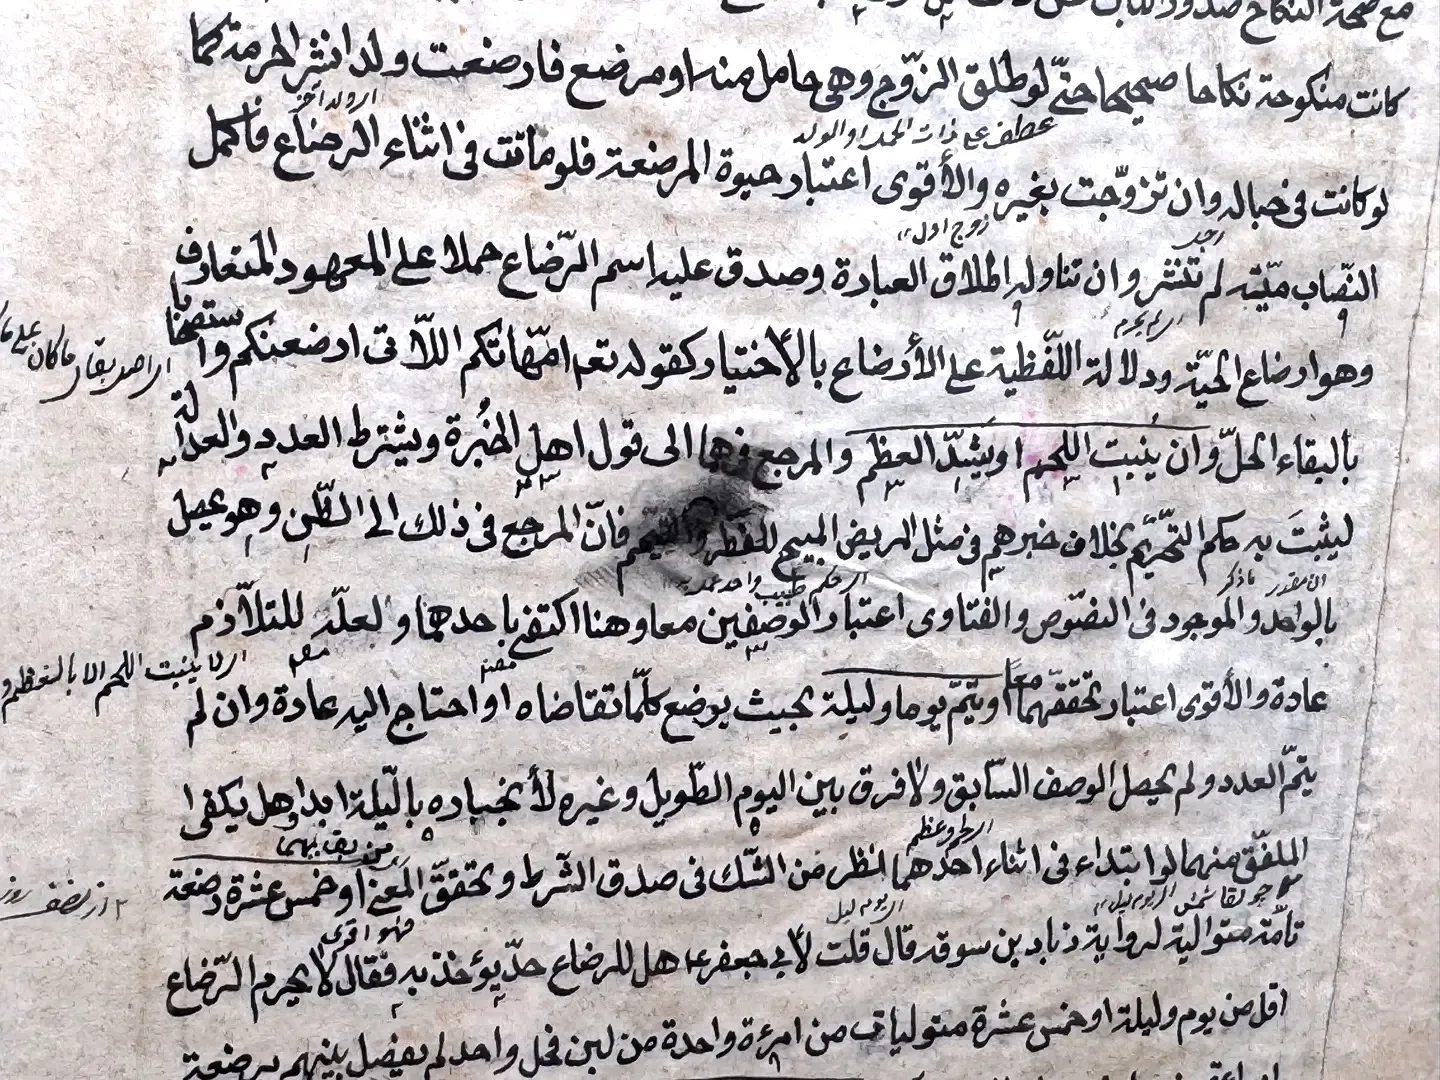 مع صحة النكاح
كانت منكوحة نكاحا صحيحا حتّى لو طلق الزّوج وهى حامل منه او مرضع فارضعت ولدا نشر الحرمة كما
او ولد آخر
عطف على ذات الحمل او الولد
لو كانت فى حباله وان تزوّجت بغيره والأقوى اعتبار حيوة المرضعة فلو ماتت فى اثناء الرضاع فاكمل
زوج اول
النّصاب ميّتة لم تنشر وان تناوله اطلاق العبارة وصدق عليه اسم الرّضاع حملا على المعهود المتعارف
وهو ارضاع الحيّة ودلالة اللّفظية على الأرضاع بالأختيار كقوله تعم امّهاتكم اللّاتى ارضعنكم واستصحابا
بالبقاء الحلّ وان يُنبت اللحم او يَشدّ العظم والمرجع فيهما الى قول اهل الخُبرة ويشترط العدد والعدالة
ليثبتَ به حكم التّحريم بخلاف خبرهم فى مثل المريض المبيح للفطر والتيمّم فانّ المرجع فى ذلك الى الظّن وهو يحصل
ما ذكر
بالواحد والموجود فى النصّوص والفتاوى اعتبار الوصفين معا وهنا اكتفى باحدهما ولعلّه للتلاّزم
اى لا ينبت اللحم الا بالعظم و
عادة والأقوى اعتبار تحققهما معًا او يتمّ يوما وليلة بحيث يرضع كلّما تقاضاه او احتاج اليه عادة وان لم
يتمّ العدد ولم يحصل الوصف السّابق ولا فرق بين اليوم الطّويل وغيره لأنجباره بالّيلة ابدا وهل يكفى
اى لحم وعظم
الملفّق منهما لو ابتداء فى اثناء احدهما نظر من الشّك فى صدق الشّرط وتحققّ المَعنى او خمس عشرة رضعة
از نصف روز
تامّة متوالية لرواية زياد بن سوقه قال قلت لأبى جعفر ع هل للرضاع حدّ يؤخذ به فقال لا يحرم الرّضاع
اقل من يوم وليلة او خمس عشرة متوليات من امرءة واحدة من لبن فحل واحد لم يفصل بينهم برضعة